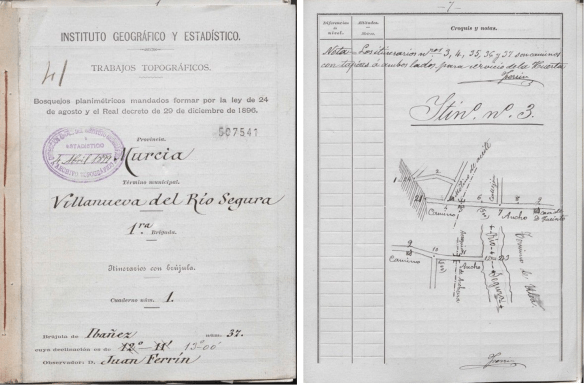 41
INSTITUTO GEOGRÁFICO Y ESTADÍSTICO.
TRABAJOS TOPOGRÁFICOS.
Bosquejos planimétricos mandados formar por la ley de 24
de agosto y el Real decreto de 29 de diciembre de 1896.
507541
Provincia.
Murcia
Término municipal.
Villanueva del Río Segura
1ra Brigada.
Itinerarios con brújula.
Cuaderno núm. 1.
Brújula de Ibañez núm. 37.
cuya declinación es de 12º - 11' 13º 00'
Observador: D. Juan Ferrín
- 7 -
Diferencias de nivel.
Croquis y notas.
Nota - Los itinerarios nos 3, 4, 35, 36 y 37 son caminos
con tapias á ambos lados para servicio de la Huerta
Ferrín
Itino. n.º 3.
Camino
Ancho
Camino
Ancho
Rio Segura
Termino de
Ferrín